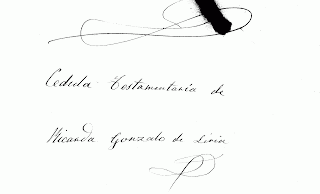 Cedula Testamentaria de
Ricarda Gonzalo de Liria